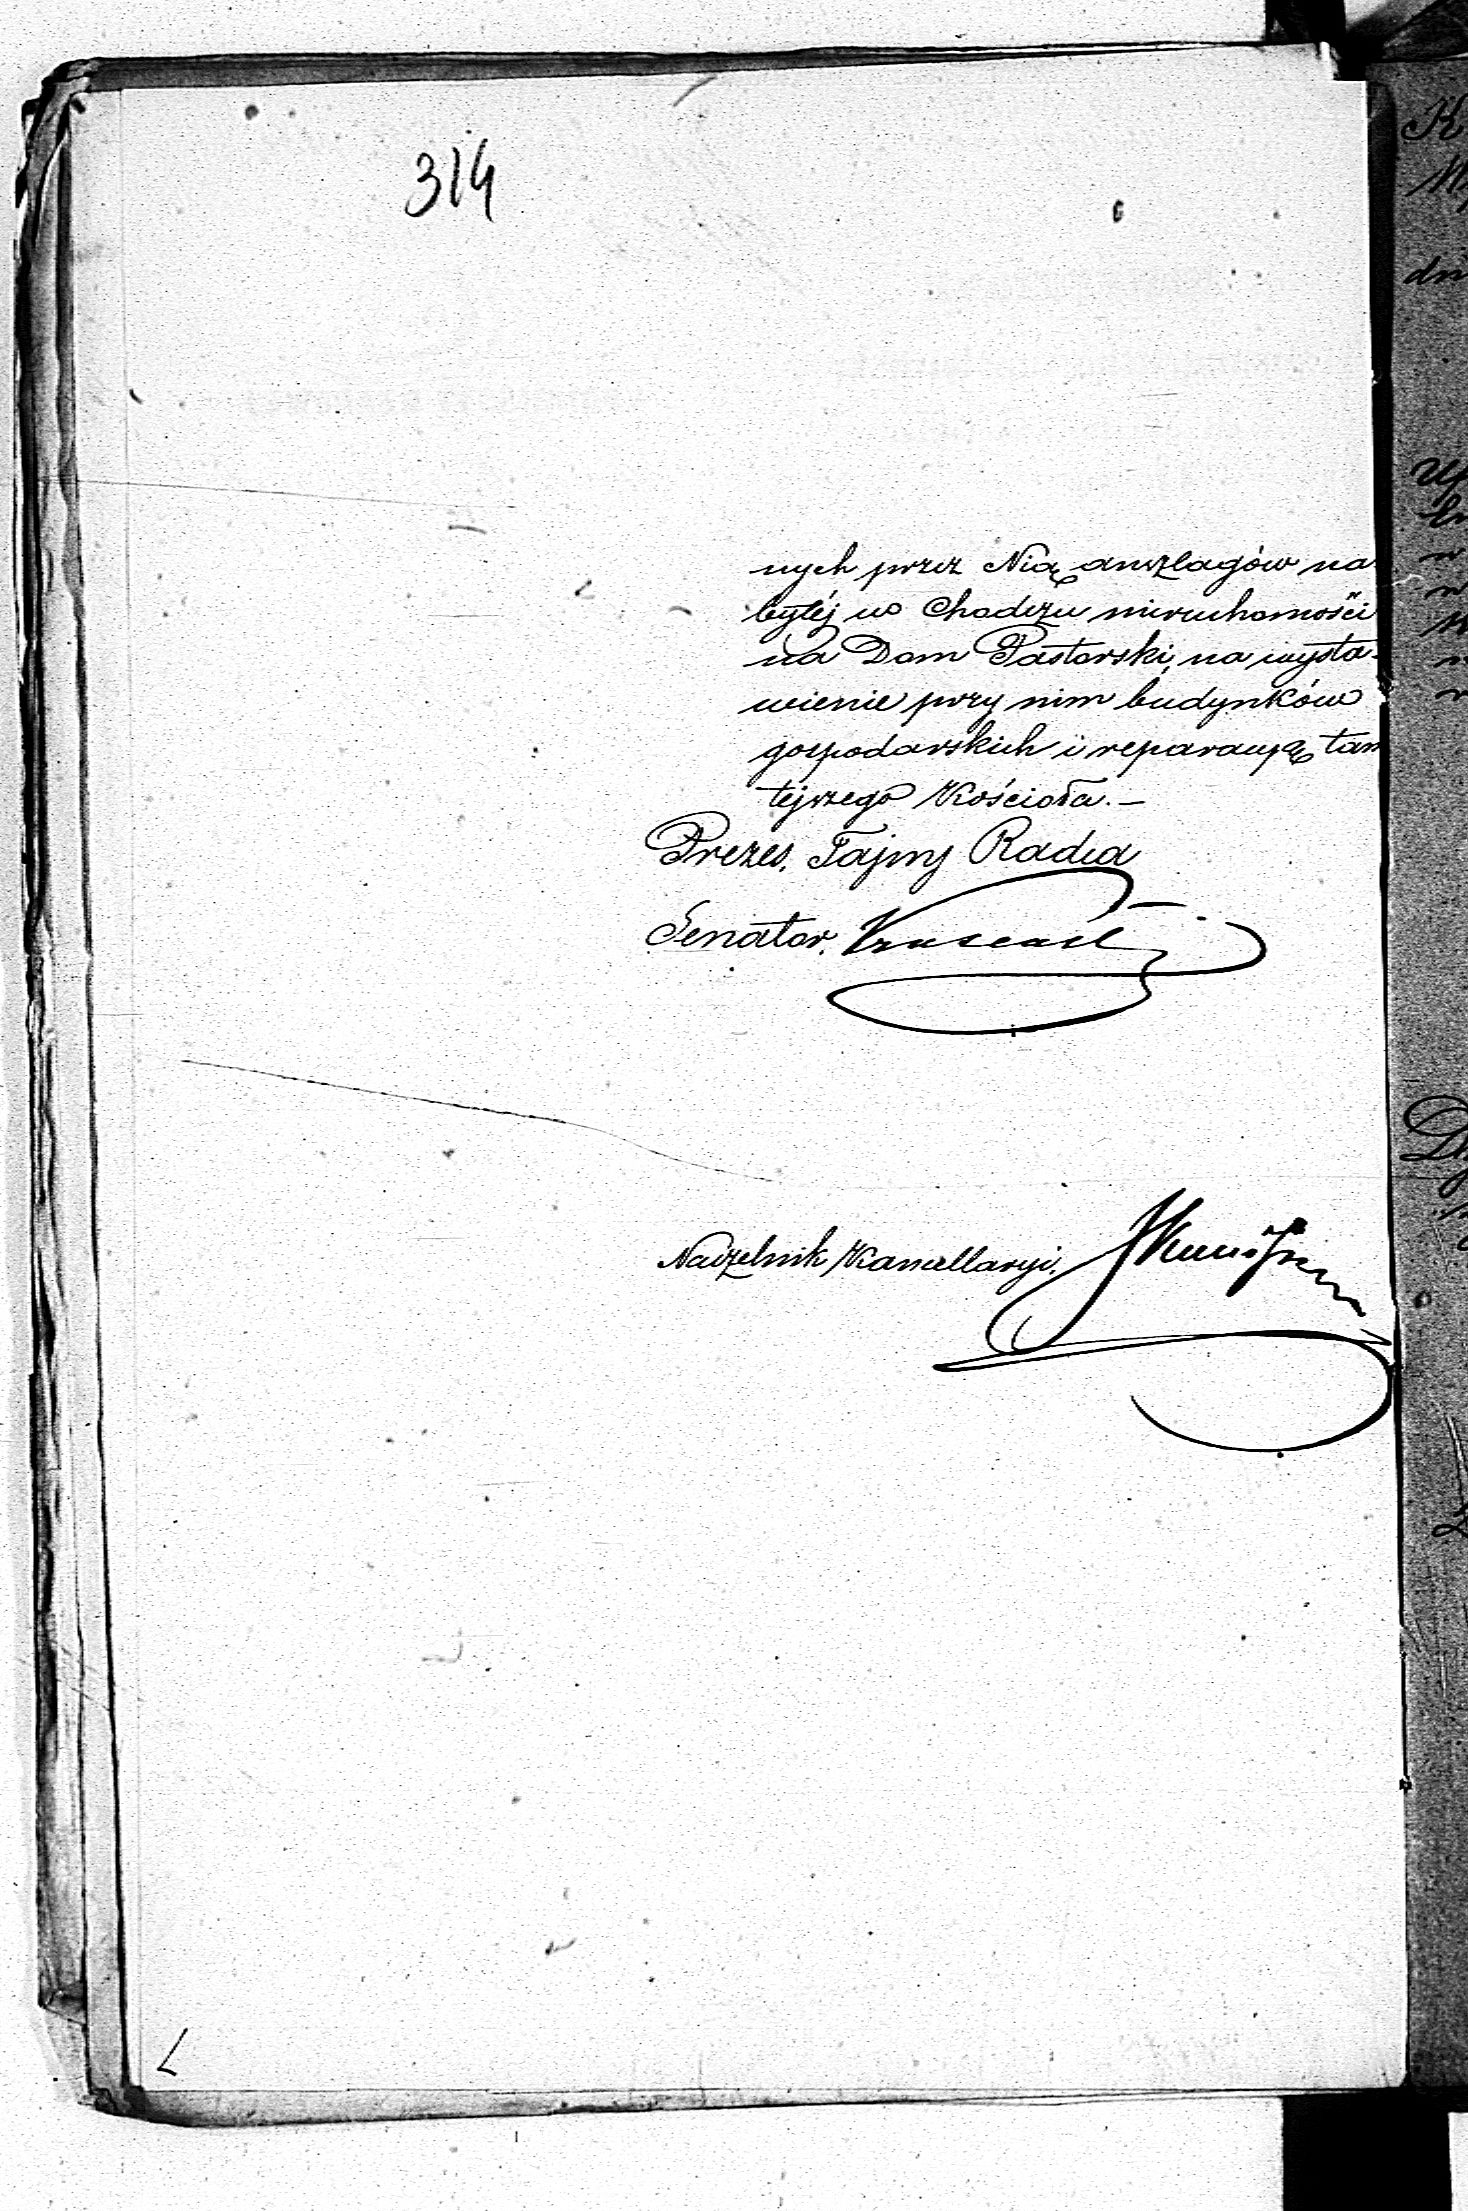 314
nych przez Nią anszlagów na
bytéj w Chodczu nieruchomości
na Dom Pastorski, na wysta-
wienie przy nim budynków
gospodarskich i reparacyą tam
tejszego Kościoła.—
Prezes, Tajny Radca
Senator,
Naczelnik Kancellaryi,